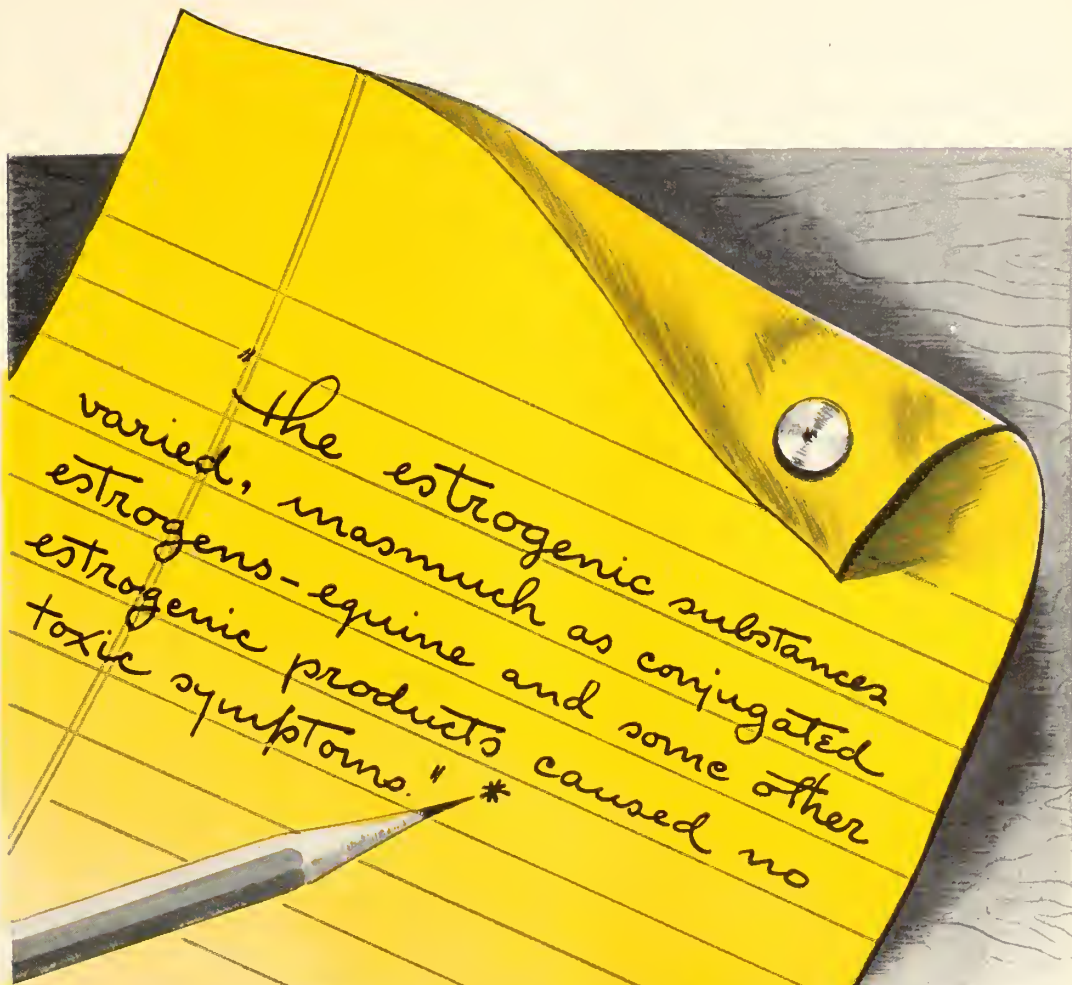 "the estrogenic substances
varied, inasmuch as conjugated
estrogens-equine and some other
estrogenic products caused no
toxic symptoms." *